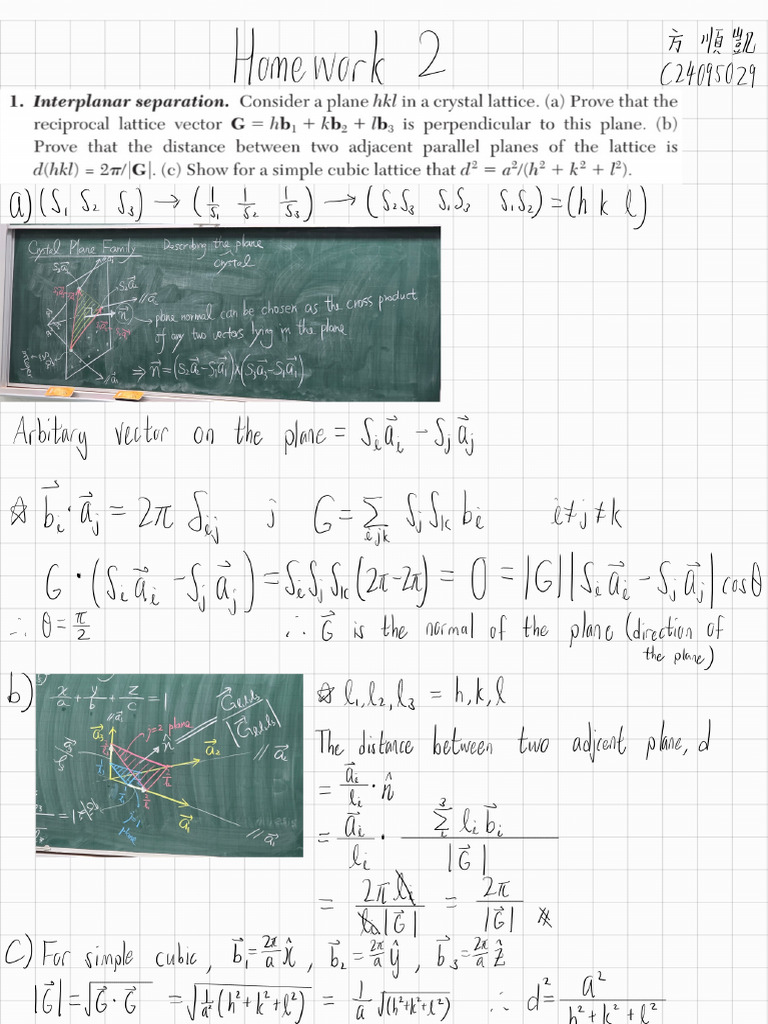 Homework 2
方 順凱
C24095029
1. Interplanar separation. Consider a plane hkl in a crystal lattice. (a) Prove that the
reciprocal lattice vector G = hb₁ + kb₂ + lb₃ is perpendicular to this plane. (b)
Prove that the distance between two adjacent parallel planes of the lattice is
d(hkl) = 2π/|G|. (c) Show for a simple cubic lattice that d² = a²/(h² + k² + l²).
a) (S₁ S₂ S₃) → (1/S₁ 1/S₂ 1/S₃) → (S₂S₃ S₁S₃ S₁S₂) = (h k l)
Crystal Plane Family Describing the plane
crystal
plane normal can be chosen as the cross product
of any two vectors lying in the plane
⇒ n⃗ = (S₂a⃗₂ − S₁a⃗₁) × (S₃a⃗₃ − S₁a⃗₁)
Arbitary vector on the plane = Sᵢa⃗ᵢ − Sⱼa⃗ⱼ
☆ b⃗ᵢ · a⃗ⱼ = 2π δᵢⱼ ; G = Σᵢⱼₖ SⱼSₖ bᵢ i ≠ j ≠ k
G · (Sᵢa⃗ᵢ − Sⱼa⃗ⱼ) = SᵢSⱼSₖ(2π−2π) = 0 = |G| |Sᵢa⃗ᵢ − Sⱼa⃗ⱼ| cosθ
∴ θ = π/2 ∴ G⃗ is the normal of the plane (direction of
the plane)
b)
x/a + y/b + z/c = 1
j=2 plane
☆ l₁, l₂, l₃ = h, k, l
The distance between two adjcent plane, d
= a⃗ᵢ/lᵢ · n̂
= a⃗ᵢ/lᵢ · Σᵢ³ lᵢb⃗ᵢ / |G⃗|
= 2π lᵢ / lᵢ|G⃗| = 2π/|G⃗| ※
C) For simple cubic, b⃗₁ = 2π/a x̂, b⃗₂ = 2π/a ŷ, b⃗₃ = 2π/a ẑ
|G⃗| = √(G⃗ · G⃗) = √(1/a² (h²+k²+l²)) = 1/a √(h²+k²+l²) ∴ d² = a²/(h²+k²+l²)